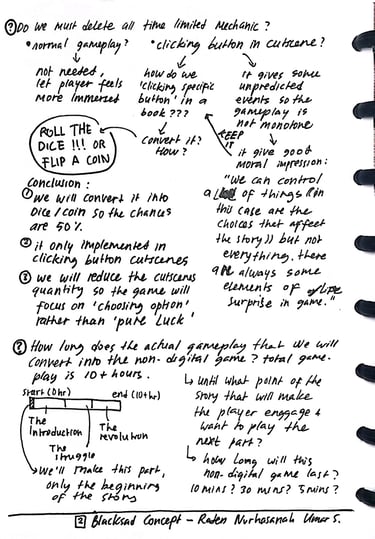 ? Do we must delete all time limited Mechanic?
• normal gameplay?
not needed,
let player feels
More Immersed
• clicking button in cutscene?
how do we
'clicking specific
button' in a
book???
convert it?
How?
ROLL THE
DICE !!! OR
FLIP A COIN
it gives some
unpredicted
events so the
gameplay is
not monotone
KEEP
IT
it give good
moral impression:
"we can control
a lot of things (in
this case are the
choices that affect
the story)) but not
everything. there
are always some
elements of
surprise in game."
Conclusion :
① we will convert it into
Dice/coin so the chances
are 50%
② it only implemented in
clicking button cutscenes
③ we will reduce the cutscenes
quantity so the game will
focus on 'choosing option'
rather than 'pure luck'
? How long does the actual gameplay that we will
convert into the non-digital game? total game-
play is 10+ hours.
start (0hr)
end (10+hr)
The
Introduction
The
struggle
The
revolution
we'll make this part,
only the beginning
of the story
until what point of the
story that will make
the player enggage &
want to play the
next part?
how long will this
non-digital game last?
10 mins? 30 mins? 5 mins?
2 Blacksad Concept - Raden Nurhasanah Umar S.